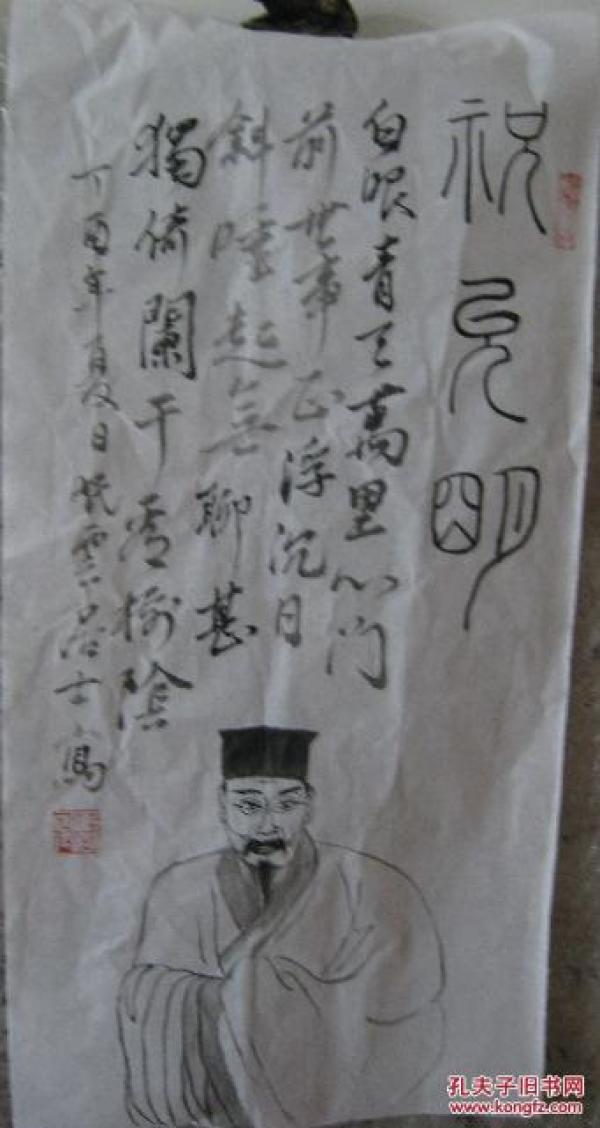 祝允明
白眼青天萬里心门
前世事正浮沉日
斜睡起無聊甚
獨倚闌干看榆陰
丁酉年夏日雲居士寫
孔夫子旧书网
www.kongfz.com